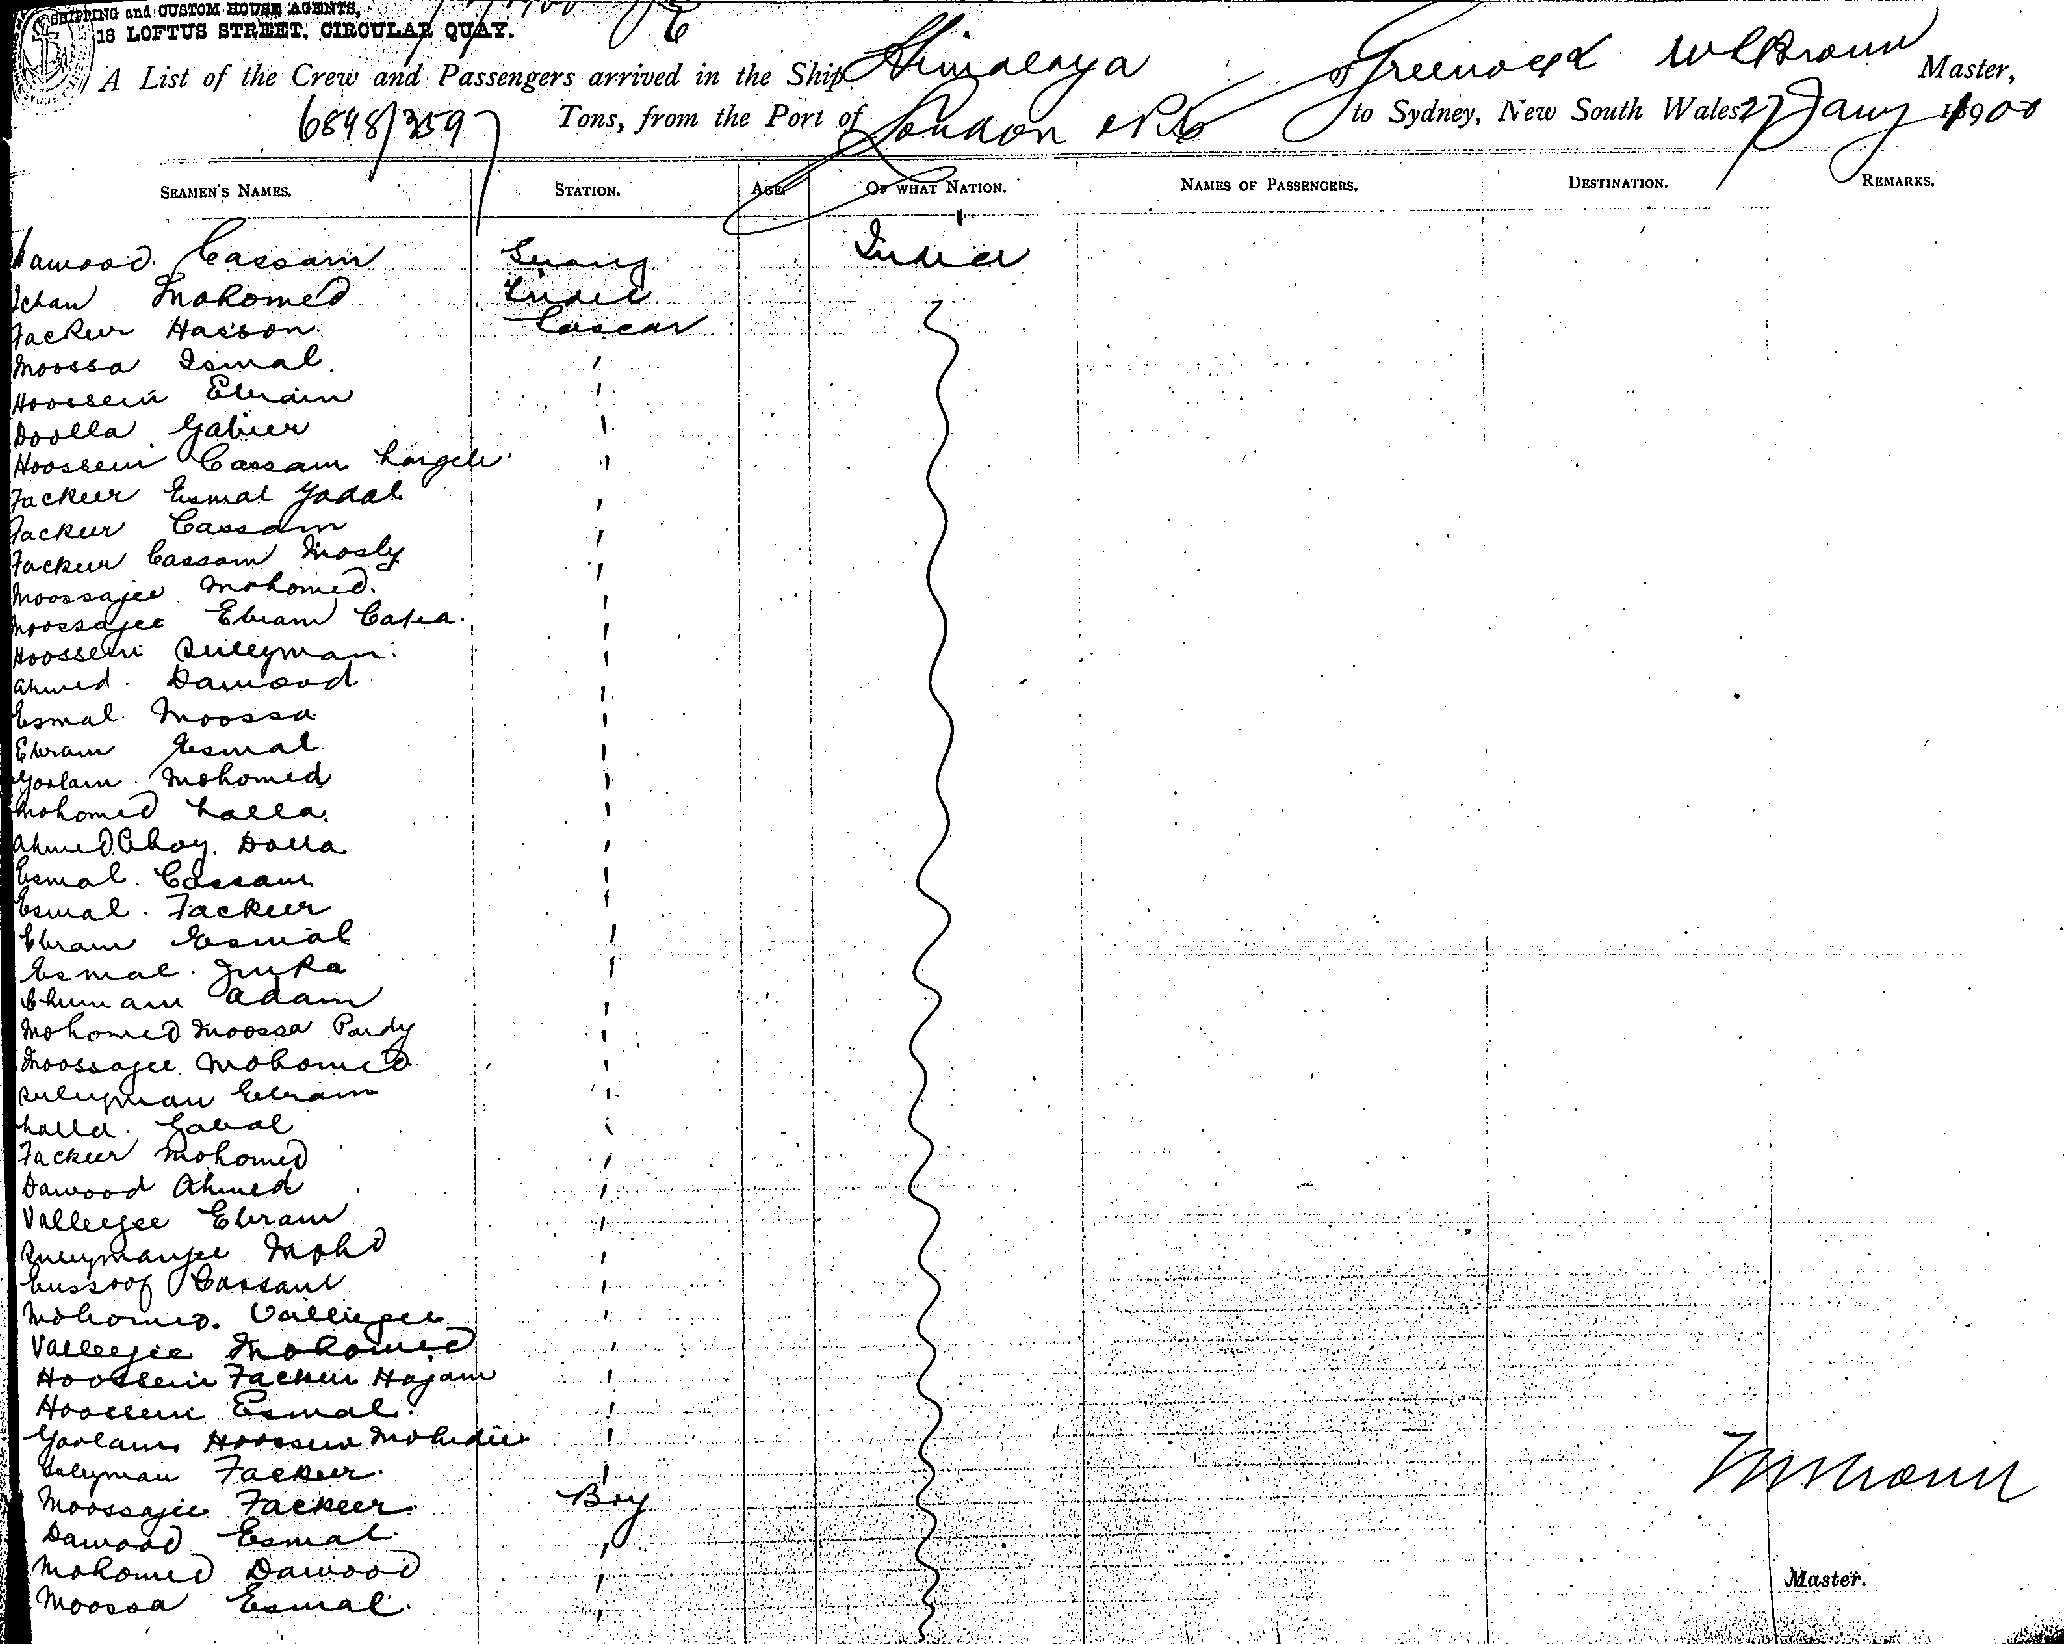 SHIPPING and CUSTOM HOUSE AGENTS,
18 LOFTUS STREET, CIRCULAR QUAY.
A List of the Crew and Passengers arrived in the Ship Himalaya of Greenock W L Broun Master,
6898/359 Tons, from the Port of London to Sydney, New South Wales 27 Jany 1900
SEAMEN'S NAMES. STATION. AGE OF WHAT NATION. NAMES OF PASSENGERS. DESTINATION. REMARKS.
Dawood Cassam Serang India
Mohomed Tindel
Fackeer Hasson Lascar
Moossa Esmal
Hoossein Ebram
Doolla
Hoossein Cassam
Fackeer Esmal
Fackeer Cassam
Fackeer Cassam
Moossajee Mohomed
Moossajee Ebram
Hoossein Suleyman
Ahmed Dawood
Esmal Moossa
Ebram Esmal
Goolam Mohomed
Mohomed Lalla
Ahmed
Esmal Cassam
Esmal Fackeer
Ebram Esmal
Esmal
Adam
Mohomed Moossa
Moossajee Mohomed
Suleyman Ebram
Lalla
Fackeer Mohomed
Dawood Ahmed
Valleejee Ebram
Suleymanjee Mohd
Eussoof Cassam
Mohomed Valleejee
Valleejee Mohomed
Hoossein Fackeer Hajam
Hoossein Esmal
Goolam Hoossein
Suleyman Fackeer
Moossajee Fackeer Boy
Dawood Esmal
Mohomed Dawood
Moossa Esmal
Master.